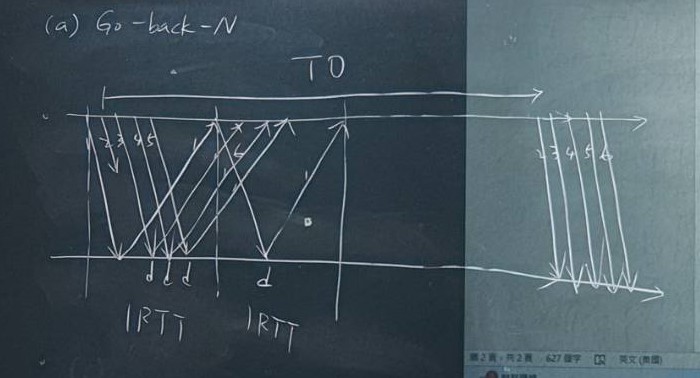 (a) Go-back-N
TO
2 3 4 5 6
2 3 4 5 6
d d d d
1RTT 1RTT
第2頁，共2頁 627個字 英文(美國)